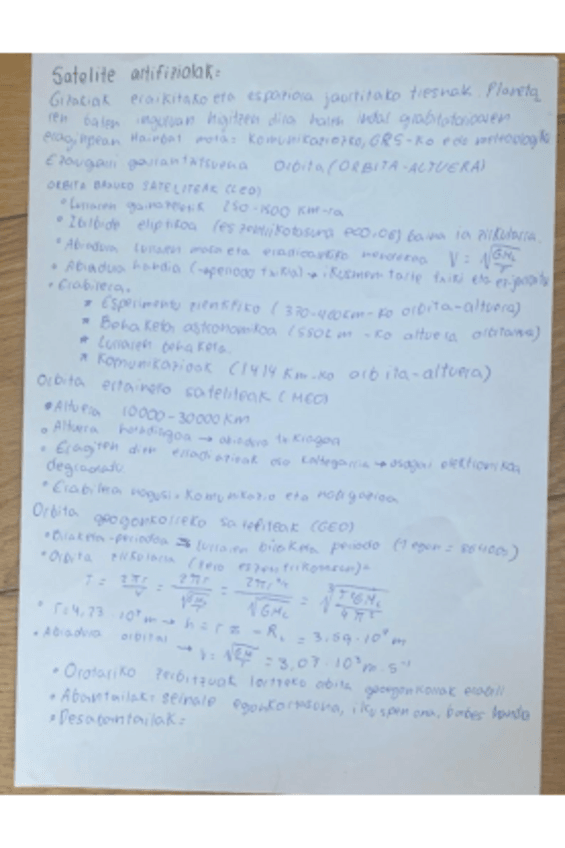 Satelite artifizialak:
Gizakiak eraikitako eta espaziora jaurtitako tresnak. Planeta
ren baten inguruan higitzen dira haren indar grabitatorioaren
eraginpean Hainbat mota: Komunikaziozko, GPS-ko edo meteorologiko
Ezaugarri garrantzitsuena Orbita (ORBITA-ALTUERA)
ORBITA BAXUKO SATELITEAK (LEO)
• Lurraren gainazaletik 250-1500 km-ra
• Ibilbide eliptikoa (eszentrikotasuna e<0,06) baina ia zirkularra.
• Abiadura Lurraren masa eta erradioarekiko menekoa V = √GM_L/r
• Abiadura handia (→periodo txikia) → ikusmen tarte txiki eta
• Erabilera.
* Esperimentu zientifiko (370-460km-ko orbita-altuera)
* Behaketa astronomikoa (550km-ko altuera orbitarra)
* Lurraren behaketa.
* Komunikazioak (1414 km-ko orbita-altuera)
Orbita ertaineko sateliteak (MEO)
• Altuera 10000-30000 km
• Altuera handiagoa → abiadura txikiagoa
• Eragiten dien erradiazioak oso kaltegarria → osagai elektronikoa
degradatu
• Erabilera nagusi. Komunikazio eta nabigazioa
Orbita geogonkorreko sateliteak (GEO)
• Biraketa-periodoa = Lurraren biraketa periodo (1 egun = 86400s)
• Orbita zirkularra (zero eszentrikoaren)
T = 2πr/v = 2πr/√GM/r = 2πr^3/2/√GM_L = ∛T²GM_L/4π²
• r=4,23 · 10⁷ m → h = r - R_L = 3.59 · 10⁷ m
• Abiadura orbital → v = √GM/r = 3,07 · 10³ m·s⁻¹
• Orotariko zerbitzuak lortzeko orbita geogonkorrak erabili
• Abantailak: seinale egonkortasuna, ikuspen ona, babes handia
• Desabantailak: